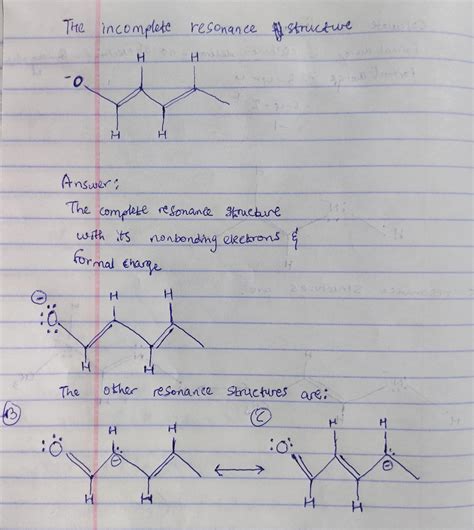 The incomplete resonance structure
H H
-O
H H
Answer:
The complete resonance structure
with its nonbonding electrons &
formal charge
⊖ H H
:Ö:
H H
The other resonance structures are:
B C
H H H H
:Ö :Ö
⊖ ⊖
H H H H